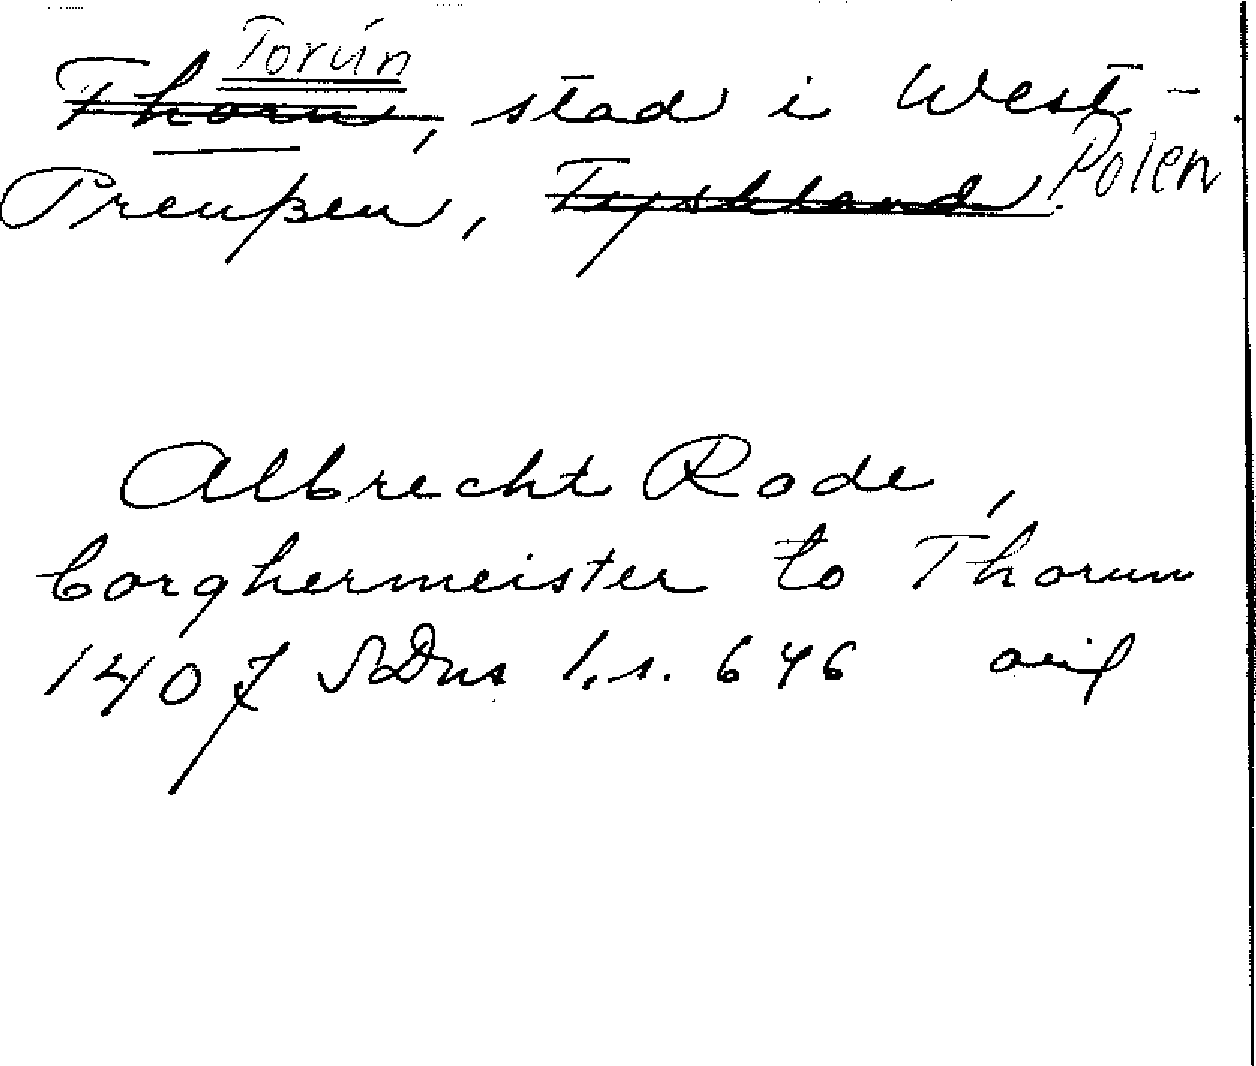 Torún
Thorn, stad i West-
Preußen, Tyskland. Polen
Albrecht Rode,
borghermeister to Thorun
1407 SDns 1, s. 646 avil